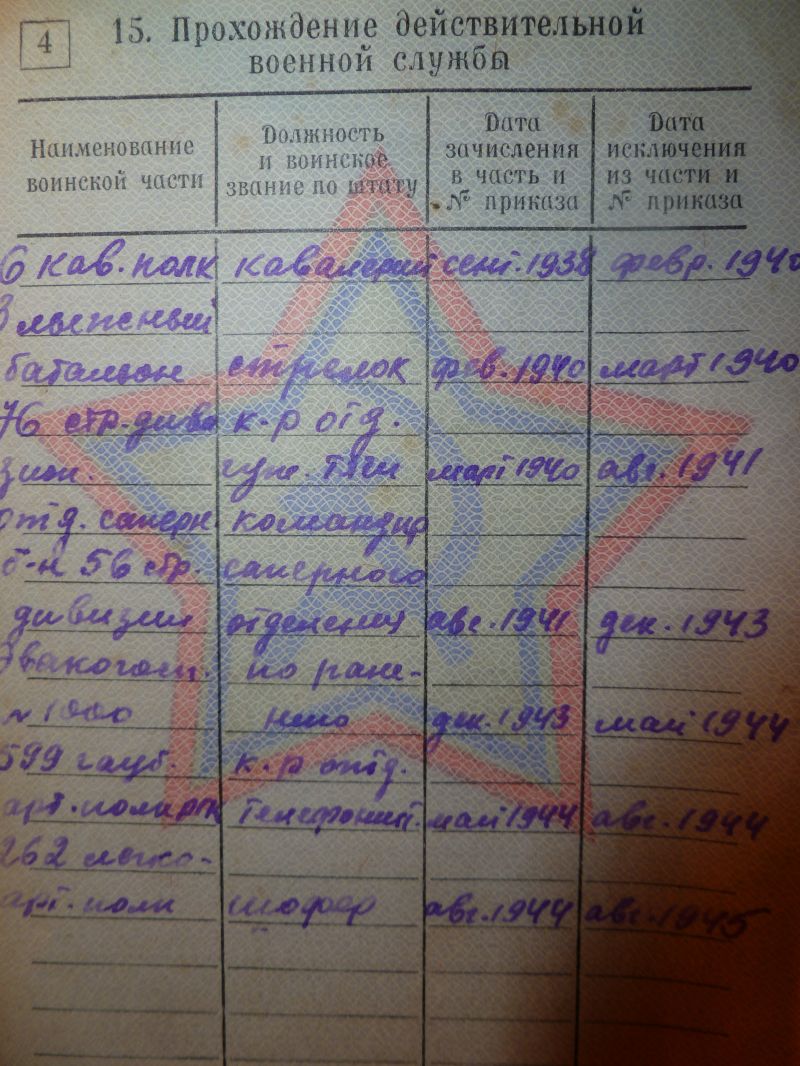 4
15. Прохождение действительной
военной службы
Наименование воинской части
Должность и воинское звание по штату
Дата зачисления в часть и № приказа
Дата исключения из части и № приказа
6 кав. полк кавалерий сент. 1938 февр. 1940
лыжный
батальон стрелок фев. 1940 март 1940
76 стр. диви к-р отд.
зион. гуж. тяги март 1940 авг. 1941
отд. саперн. командир
б-н 56 стр. саперного
дивизии отделения авг. 1941 дек. 1943
Эвакогосп. по ране-
№ 1000 нию дек. 1943 май 1944
599 гауб. к-р отд.
арт. полк телефонист. май 1944 авг. 1944
262 легко-
арт. полк шофер авг. 1944 авг. 1945